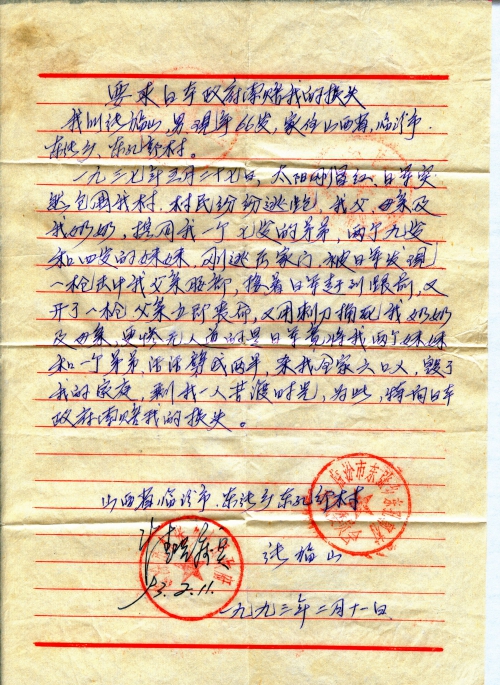 要求日本政府索赔我的损失
我叫张福山，男，现年66岁，家住山西省，临汾市，
东张乡，东孔郭村。
一九三七年三月二十七日，太阳刚冒红，日军突
然包围我村，村民纷纷逃跑，我父、母亲及
我奶奶，携同我一个弟弟，两个九岁
和四岁的妹妹，刚逃在家门被日军发现
一枪击中我父亲，接着日军赶到跟前，又
开了一枪父亲立即丧命，又用刺刀捅死我奶奶
及母亲，更惨无人道的是日军竟将我两个妹妹
和一个弟弟，活活劈成两半，来我全家六口人，毁了
我的家庭，剩我一人苦渡时光，为此，特向日本
政府索赔我的损失。
山西省临汾市，东张乡东孔郭村
张福山
93.2.11.
一九九三年二月十一日